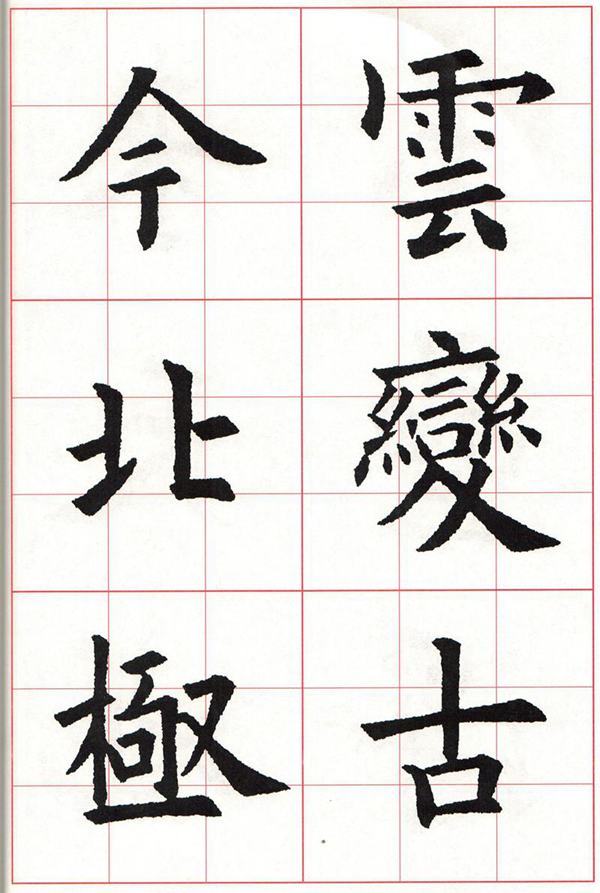 雲變古
今北極